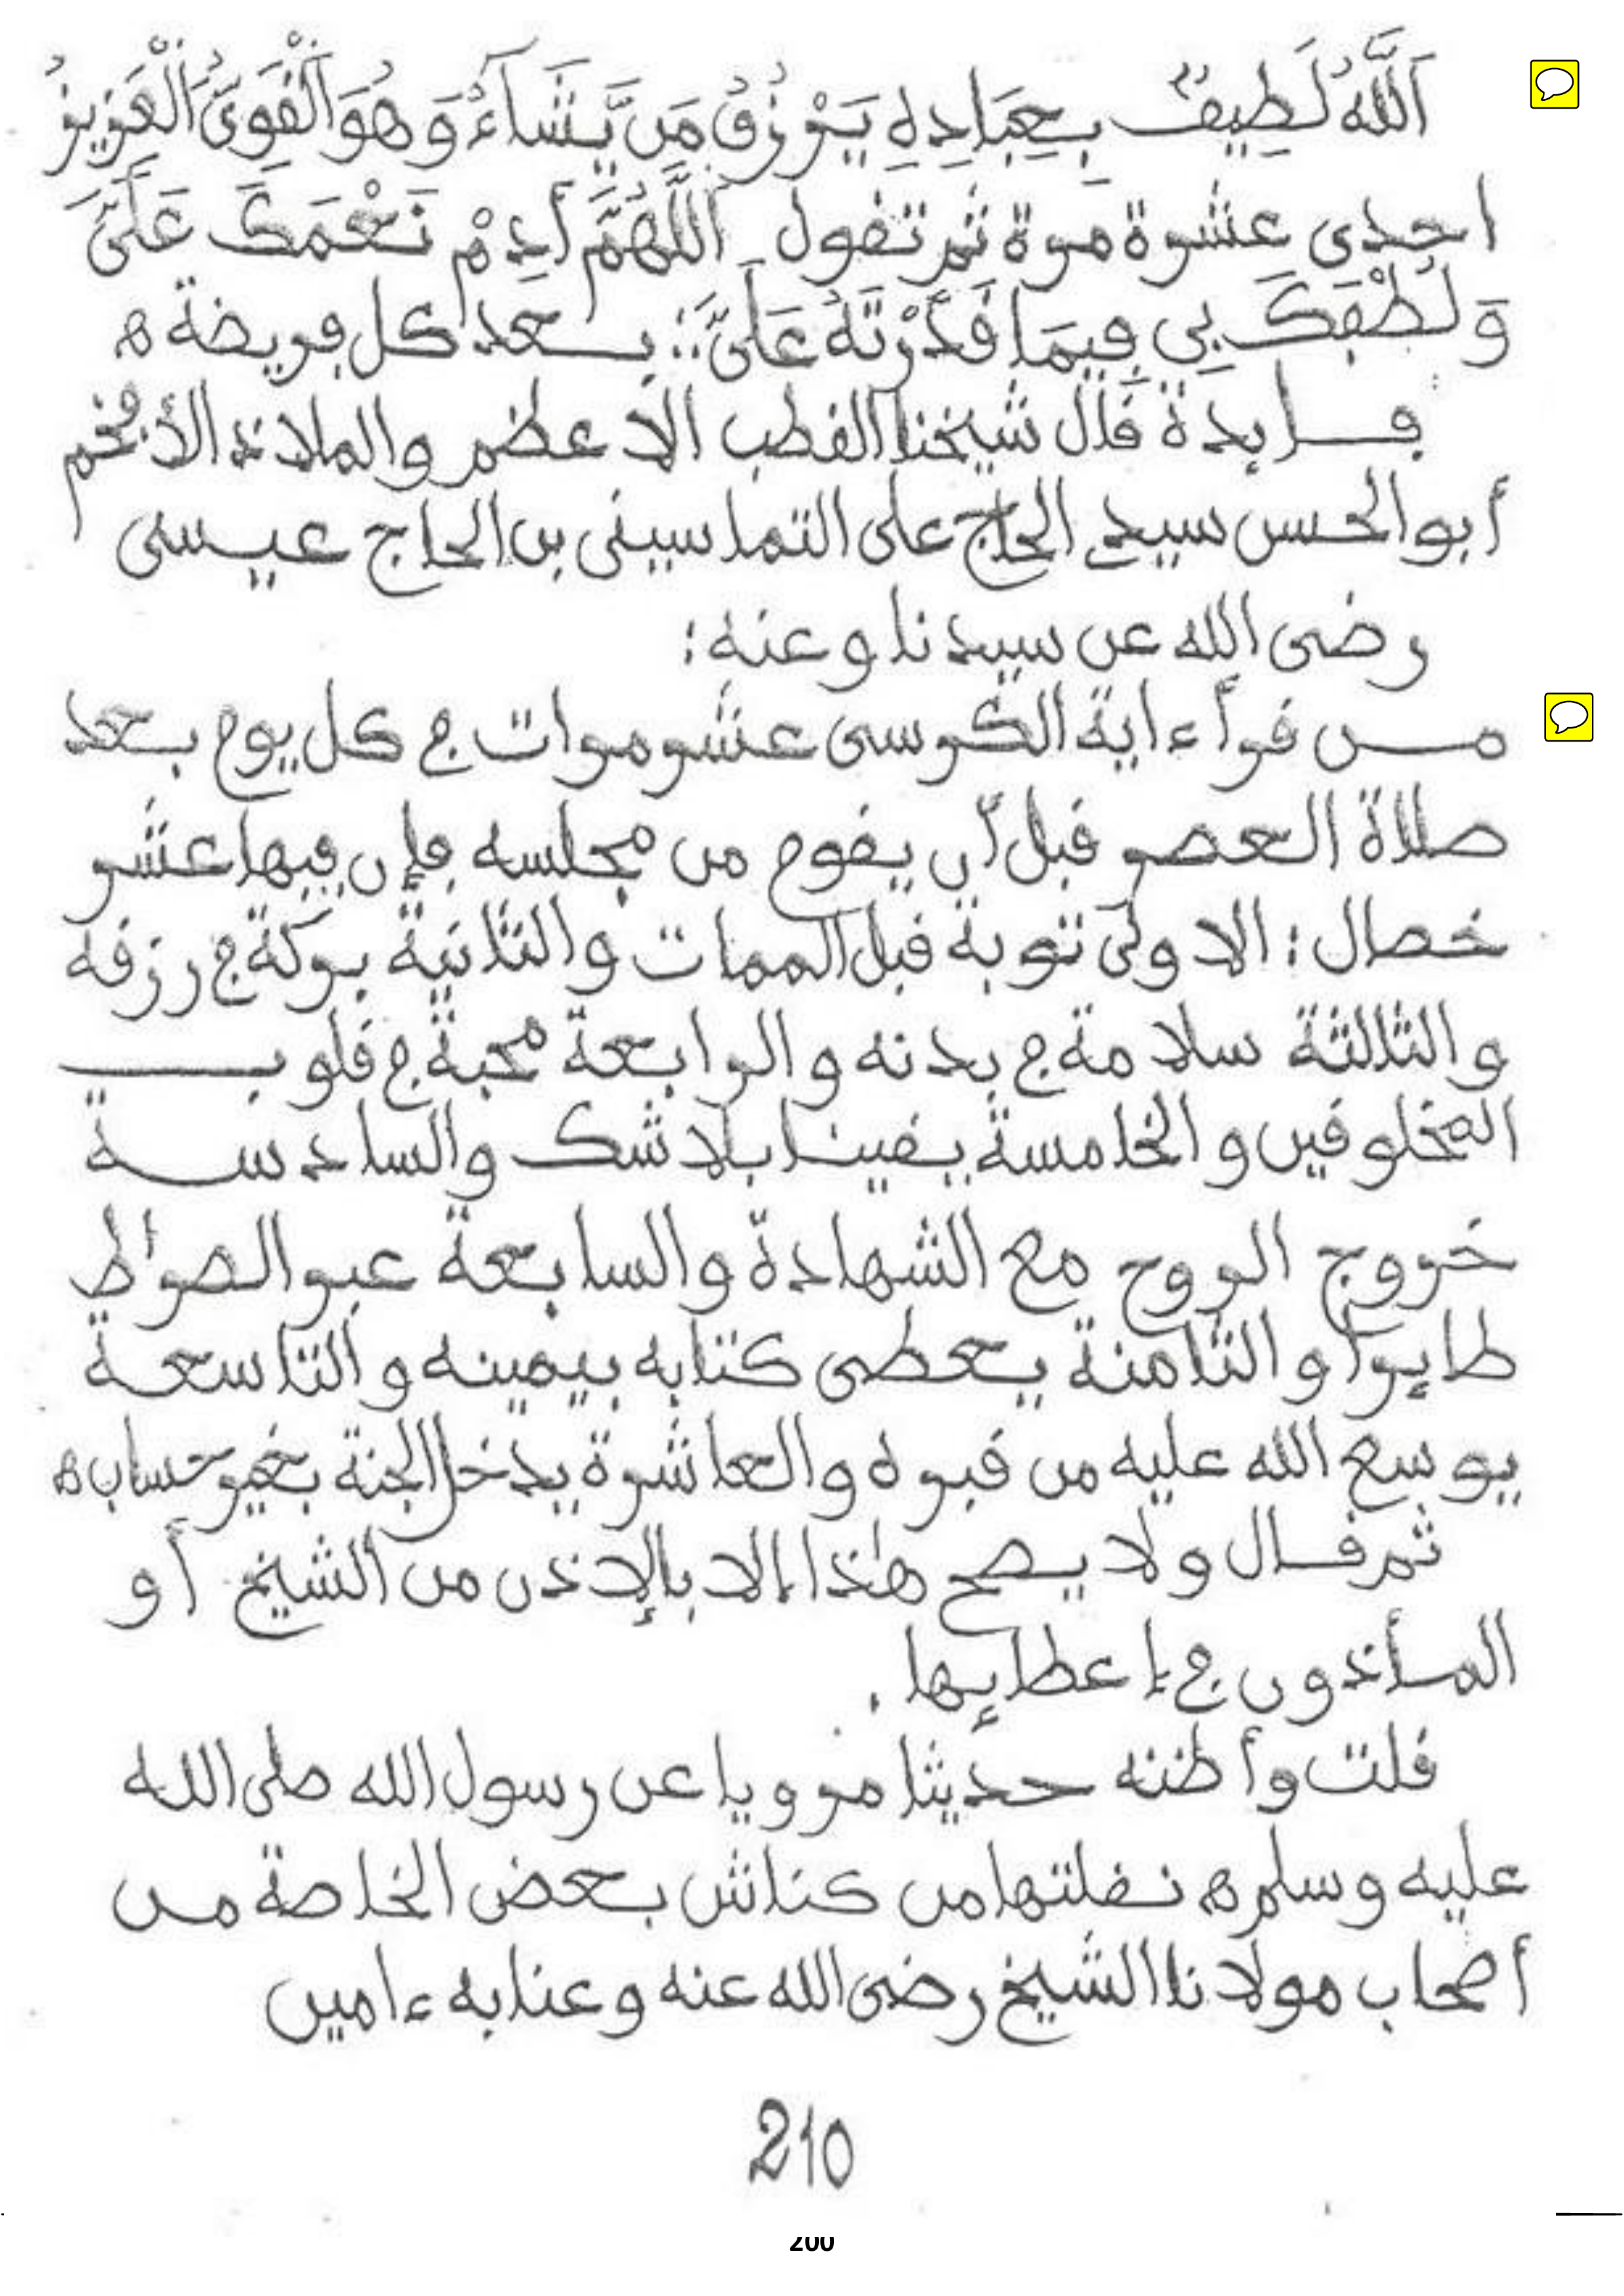 اَللَّهُ لَطِيفٌ بِعِبَادِهِ يَرْزُقُ مَن يَّشَآءُ وَهُوَ اَلْقَوِىُّ اُلْعَزِيزُ
احدى عشرة مرة ثم تقول اَللَّهُمَّ أَدِمْ نَعْمَكَ عَلَىَّ
وَلُطْفِكَ بِي فِيمَا قَدَّرْتَهُ عَلَىَّ ؛: بعد كل فريضة ه
فايدة قال شيخنا القطب الاعظم والملاذ الأفخم
أبو الحسن سيدي الحاج على التماسينى بن الحاج عيسى
رضى الله عن سيدنا وعنه :
من قرأ ءاية الكرسى عشر مرات في كل يوم بعد
صلاة العصر قبل أن يقوم من مجلسه فإن فيها عشر
خصال : الاولى توبة قبل الممات والثانية بركة في رزقه
والثالثة سلامة في بدنه والرابعة محبة في قلوب
المخلوقين والخامسة يقينا بلا شك والسادسة
خروج الروح مع الشهادة والسابعة عبر الصراط
طايرا والثامنة يعطى كتابه بيمينه والتاسعة
يوسع الله عليه من قبره والعاشرة يدخل الجنة بغير حساب ه
ثم قال ولا يصح هذا إلا بالإذن من الشيخ أو
المأذون في إعطايها .
قلت وأظنه حديثا مرويا عن رسول الله صلى الله
عليه وسلم ه نقلتها من كناش بعض الخاصة من
أصحاب مولانا الشيخ رضى الله عنه وعنا به ءامين
210
200